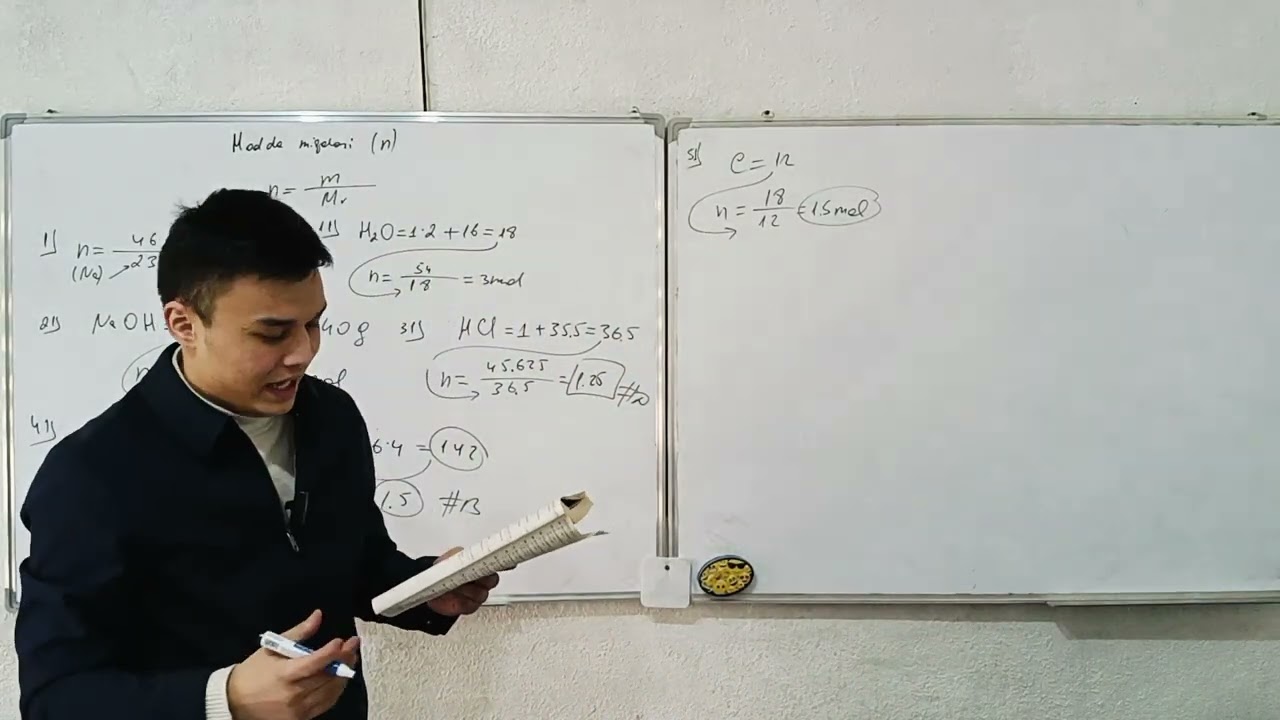 Modda miqdori (n)
n = m / Mr
1) n = 46 / 23
(Na)
11) H₂O = 1·2 + 16 = 18
n = 54 / 18 = 3 mol
21) NaOH = 40g
31) HCl = 1 + 35.5 = 36.5
n = 45.625 / 36.5 = 1.25 #D
41) 6·4 = 142
1.5 #B
51) C = 12
n = 18 / 12 = 1.5 mol